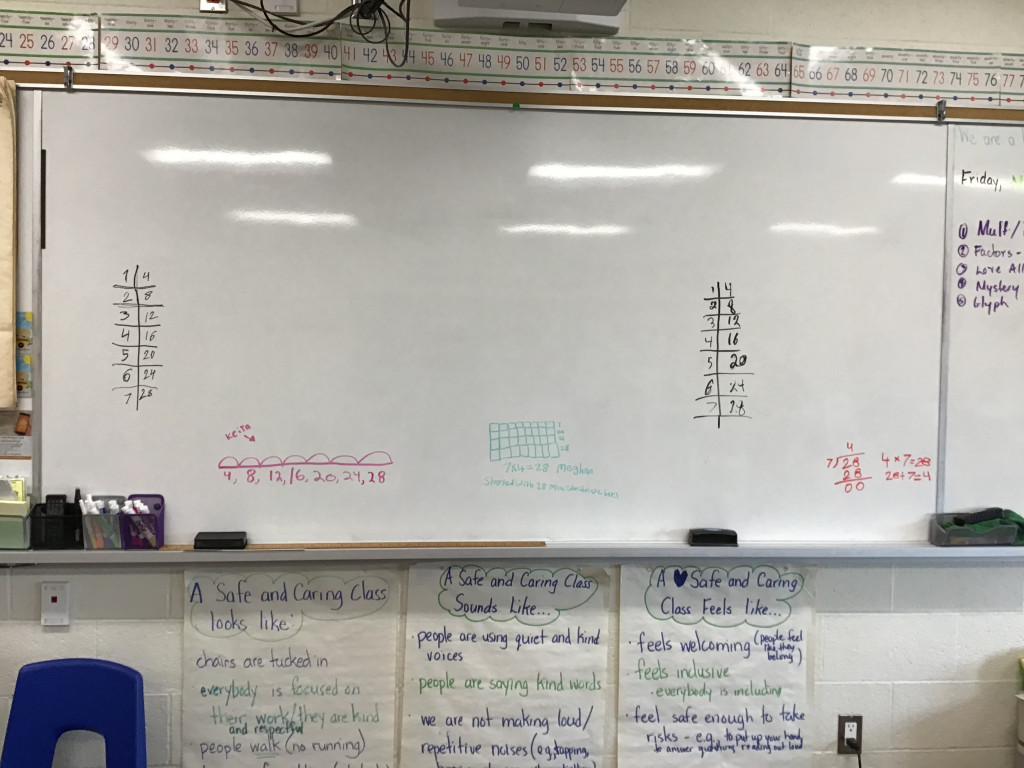 24 25 26 27 28 29 30 31 32 33 34 35 36 37 38 39 40 41 42 43 44 45 46 47 48 49 50 51 52 53 54 55 56 57 58 59 60 61 62 63 64 65 66 67 68 69 70 71 72 73 74 75 76 77
We are a
Friday,
① Mult/
② Factors -
Love All
Mystery
Glyph
1 4
2 8
3 12
4 16
5 20
6 24
7 28
1 4
2 8
3 12
4 16
5 20
6 24
7 28
Keita
4, 8, 12, 16, 20, 24, 28
7x4=28 Meghan
Started with 28
4
7 28
28
00
4 × 7 = 28
28 ÷ 7 = 4
A Safe and Caring Class
looks like:
chairs are tucked in
everybody is focused on
their work/they are kind
and respectful
people walk (no running)
A Safe and Caring Class
Sounds Like...
· people are using quiet and kind
voices
· people are saying kind words
· we are not making loud/
repetitive noises (e.g, tapping,
A ♥ Safe and Caring
Class Feels like...
· feels welcoming (people feel
like they
belong)
· feels inclusive
- everybody is including
· feel safe enough to take
risks - e.g. to put up your hand,
to answer reading out loud